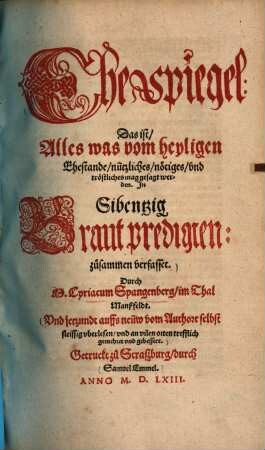 Ehespiegel:
Das ist/
Alles was vom heyligen
Ehestande/nützliches/nötiges/vnd
tröstliches mag gesagt wer-
den. In
Sibentzig
Braut predigen:
zůsammen verfasset.
Durch
M. Cyriacum Spangenberg/im Thal
Manßfeldt.
(Vnd jetzundt auffs neüw vom Authore selbst
fleissig vberlesen/vnd an vilen orten trefflich
gemehret vnd gebessert.
Getruckt zů Straßburg/durch
(Samuel Emmel.
ANNO M. D. LXIII.